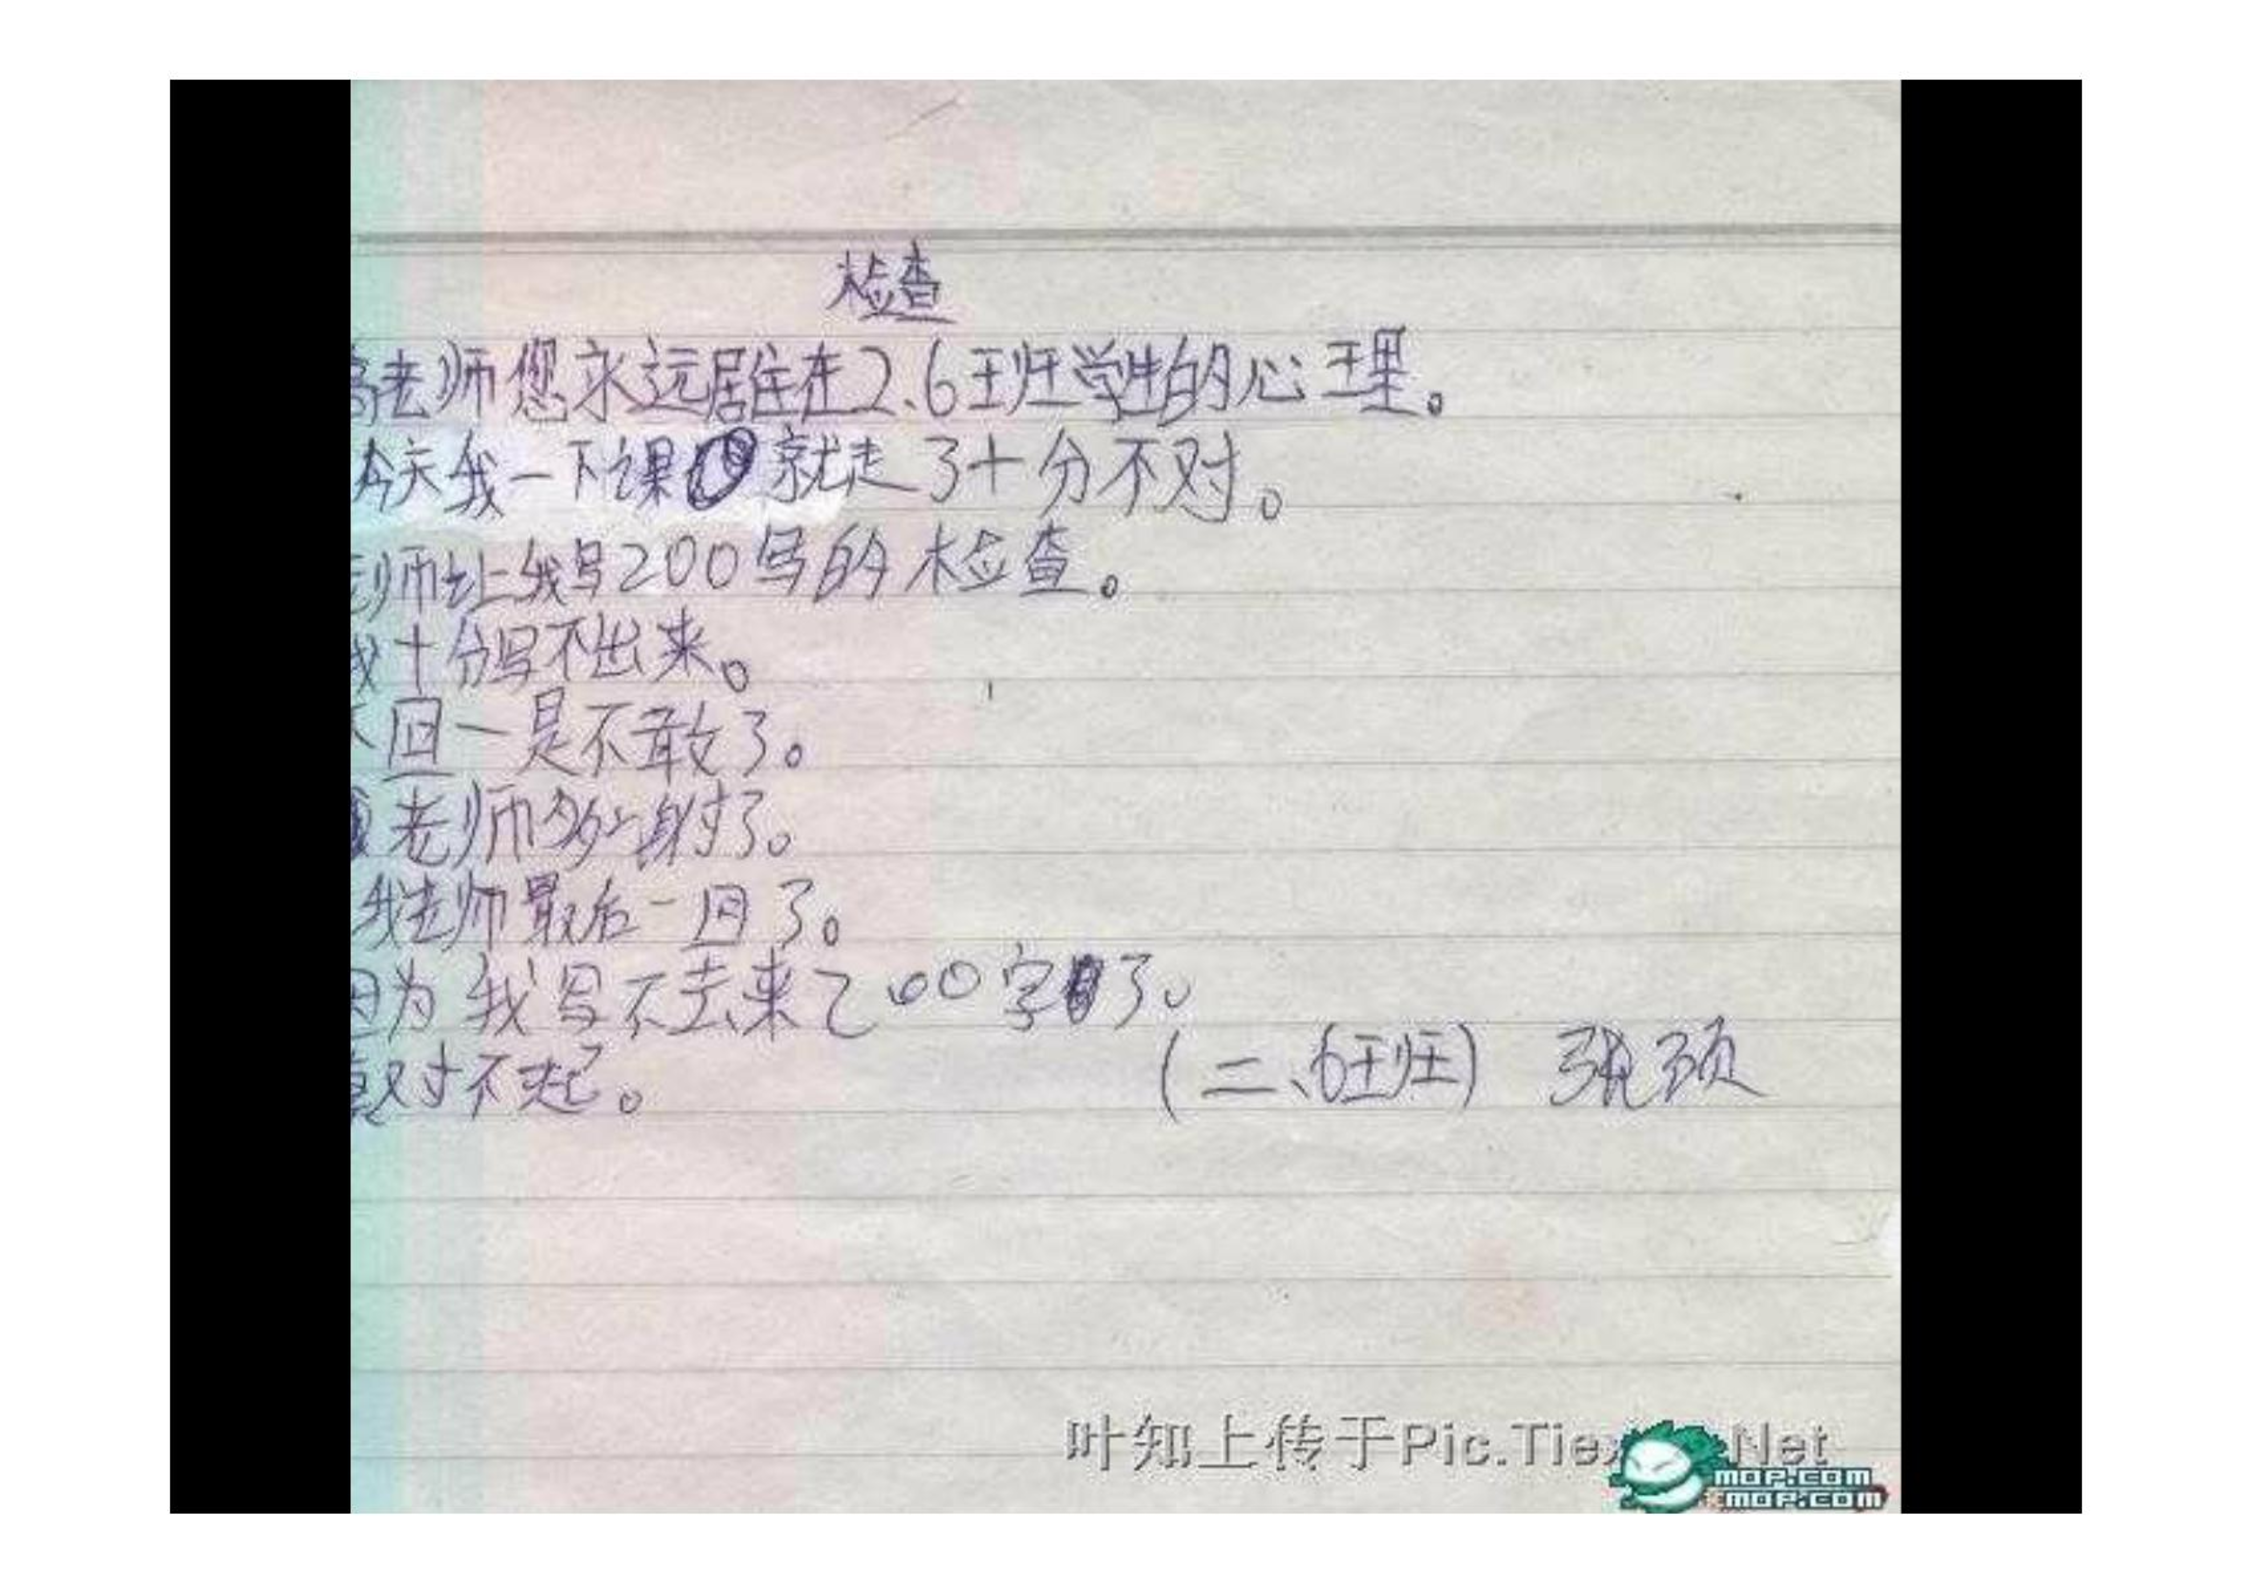 检查
高老师您永远居住在2.6班学生的心理。
今天我一下课就走了十分不对。
老师让我写200写的检查。
我十分写不出来。
下回一是不敢了。
老师多谢了。
我老师最后一回了。
因为我写不去来200字了。
真对不起。
(二、6班) 张颈
叶知上传于Pic.Tiex Net
mop.com
mop.com